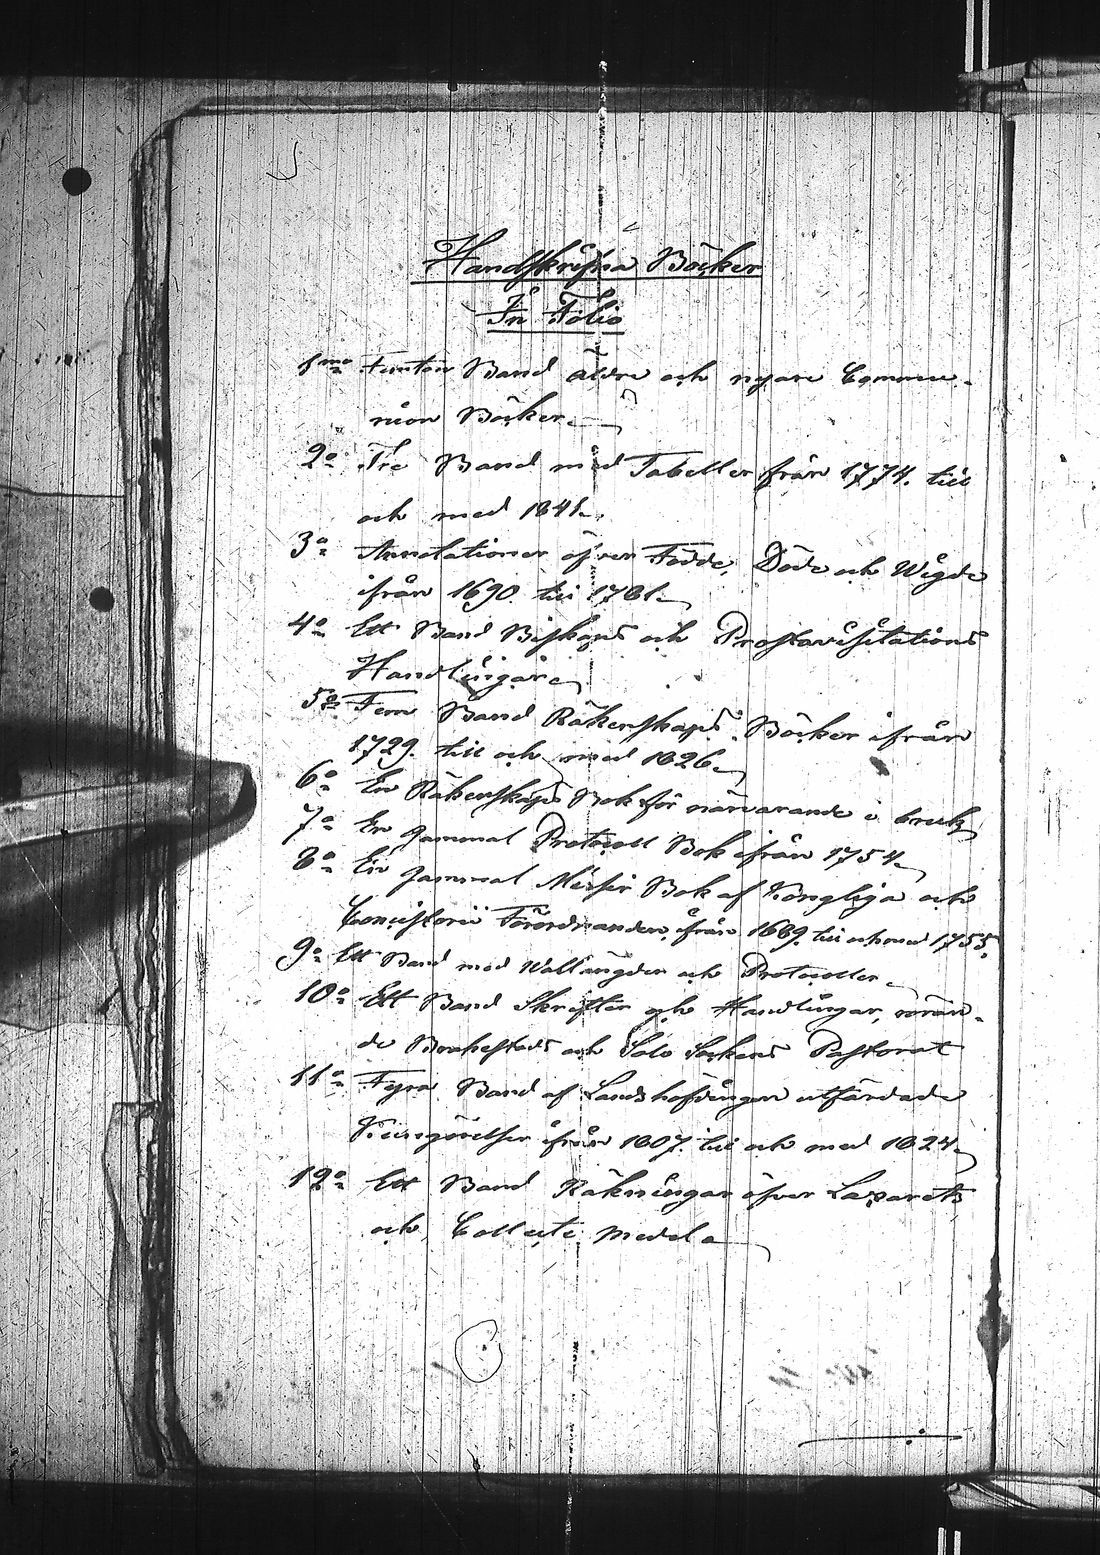 Handskrifna Böcker
In Folio
1mo Femton Band äldre och nyare Commu-
nion Böcker.
2o Tre Band med Tabeller från 1774. till
och med 1841.
3o Annotationer öfver Födde, Döde och Wigde
ifrån 1690. till 1761.
4o Ett Band Biskops och Prostavisitations
Handlingar.
5o Fem Band Räkenskaps Böcker ifrån
1729. till och med 1826.
6o En Räkenskaps Bok för närvarande i bruk
7o En gammal Protocoll Bok ifrån 1754.
8o En gammal Missiv Bok af Kongliga och
Consistorii Förordnanden, ifrån 1689. till och med 1755.
9o Ett Band med Wallängder och Protocoller.
10o Ett Band Skrifter och Handlingar, röran-
de och Solo Sockens Pastorat
11o Fyra Band af Landshöfdingen utfärdade
Kungörelser ifrån 1807. till och med 1824.
12o Ett Band Räkningar öfver Lazaretts
och Collecte medel.